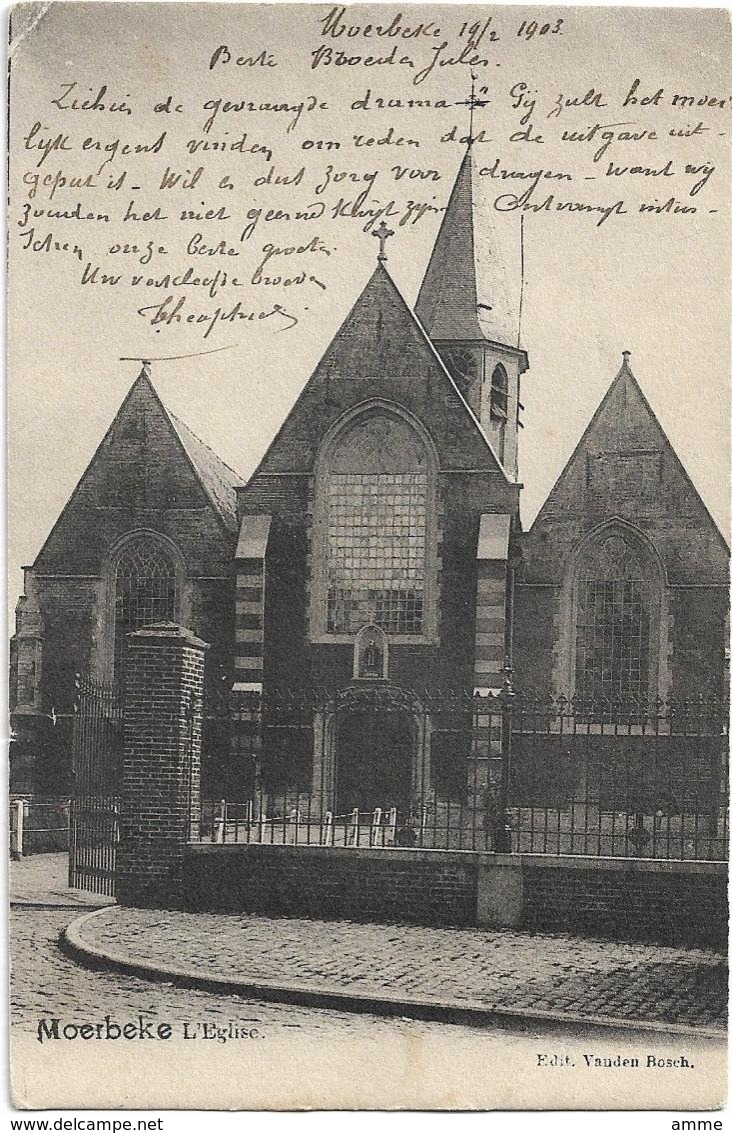 Moerbeke 19/2 1903.
Beste Broeder Jules.
Ziehier de gevraagde drama - Gij zult het moei-
lijk ergens vinden, om reden dat de uitgave uit-
geput is - Wil er dus zorg voor dragen - want wij
zouden het niet geerne kwijt zijn. Ontvangt intus-
schen onze beste groeten.
Uw verkleefde broeder
Theophiel
Moerbeke L'Eglise.
Edit. Vanden Bosch.
Moerbeke
amme